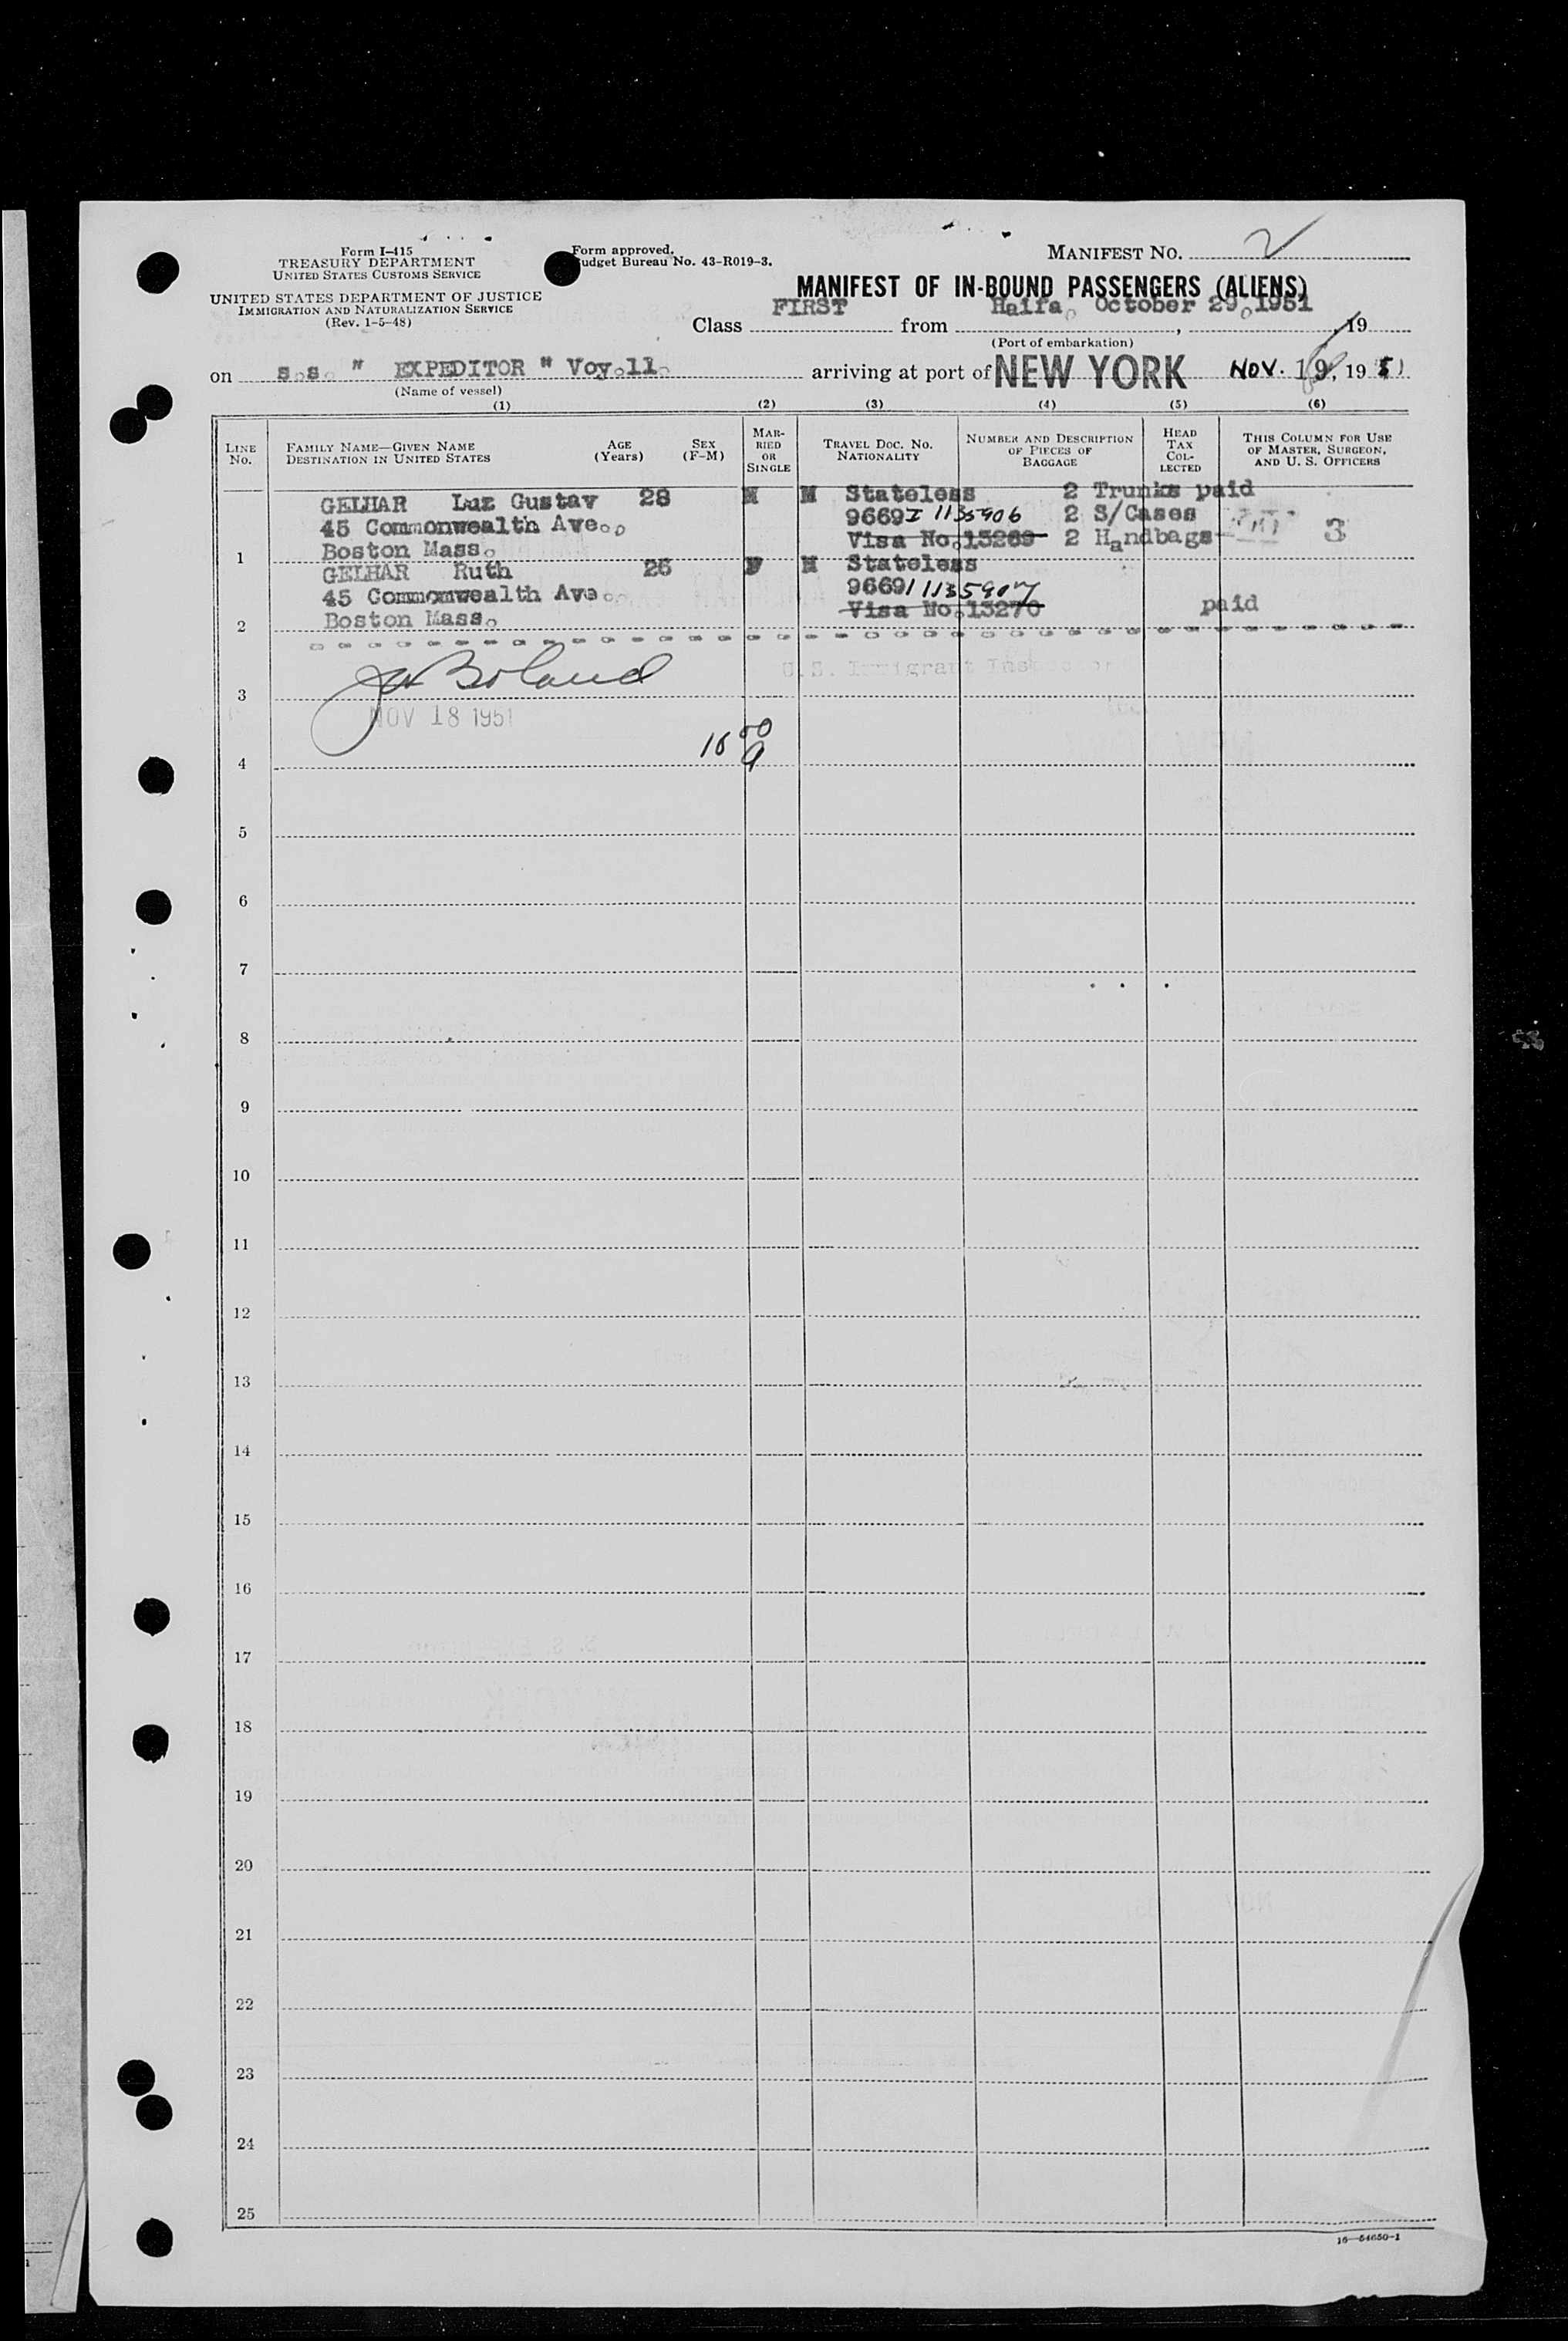 Form I-415
TREASURY DEPARTMENT
UNITED STATES CUSTOMS SERVICE
UNITED STATES DEPARTMENT OF JUSTICE
IMMIGRATION AND NATURALIZATION SERVICE
(Rev. 1-5-48)
Form approved.
udget Bureau No. 43-R019-3.
MANIFEST NO. 2
MANIFEST OF IN-BOUND PASSENGERS (ALIENS)
Class FIRST from Haifa, October 29, 1951, 19
(Port of embarkation)
on s.s. " EXPEDITOR " Voy.11. arriving at port of NEW YORK NOV. 19, 1951
(Name of vessel)
(1) (2) (3) (4) (5) (6)
LINE No. FAMILY NAME—GIVEN NAME DESTINATION IN UNITED STATES AGE (Years) SEX (F-M) MARRIED OR SINGLE TRAVEL DOC. NO. NATIONALITY NUMBER AND DESCRIPTION OF PIECES OF BAGGAGE HEAD TAX COLLECTED THIS COLUMN FOR USE OF MASTER, SURGEON, AND U. S. OFFICERS
GELHAR Luz Gustav 28 M M Stateless 2 Trunks paid
45 Commonwealth Ave., 9669 I 1135906 2 S/Cases
1 Boston Mass. Visa No.13269 2 Handbags 3
GELHAR Ruth 26 F M Stateless
45 Commonwealth Ave. 9669 I 1135907
2 Boston Mass. Visa No.13270 paid
Boland
U.S. Immigrant Inspector
3
NOV 18 1951
4
5
6
7
8
9
10
11
12
13
14
15
16
17
18
19
20
21
22
23
24
25
16—54650-1